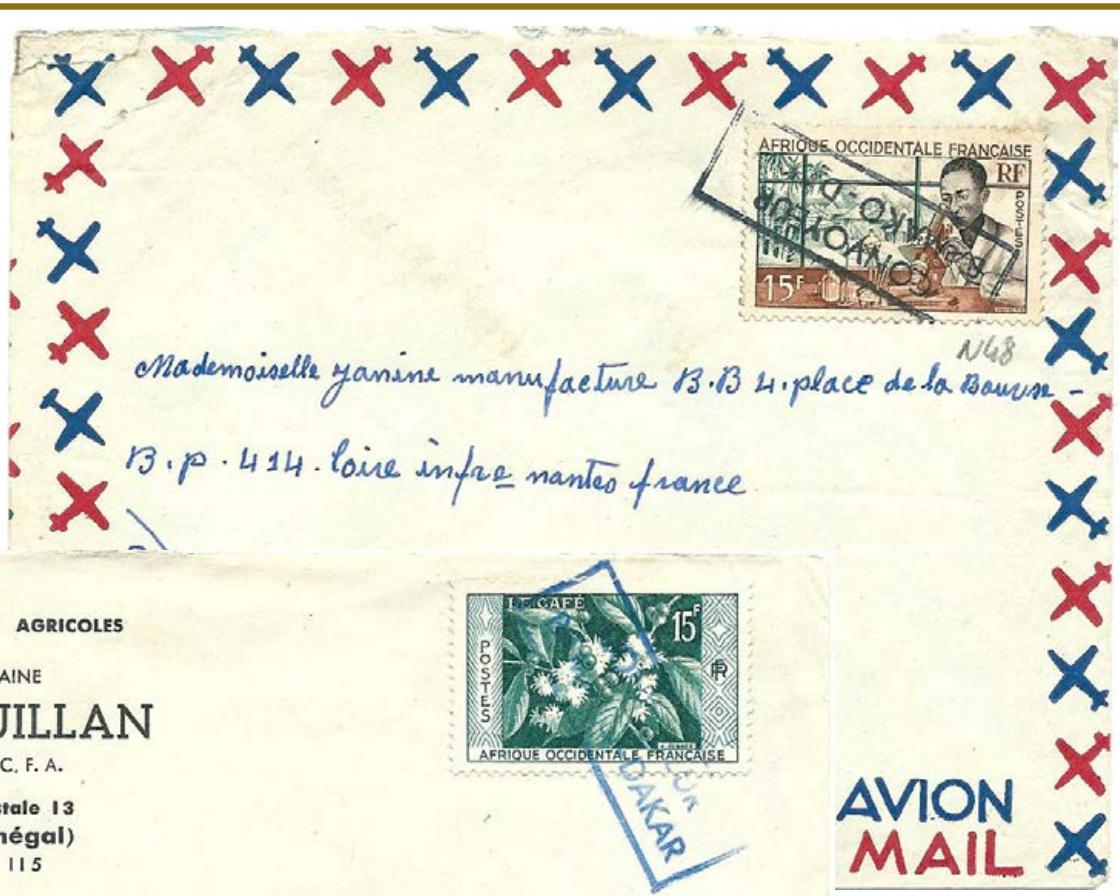 AFRIQUE OCCIDENTALE FRANÇAISE
RF
POSTES
15F
CONVOYEUR
N48
Mademoiselle Janine manufacture B.B 4. place de la Bourse -
B.p. 414. loire infre nantes france
AGRICOLES
AINE
UILLAN
C. F. A.
stale 13
négal)
115
LE CAFÉ
15F
POSTES
RF
AFRIQUE OCCIDENTALE FRANÇAISE
DAKAR
AVION
MAIL